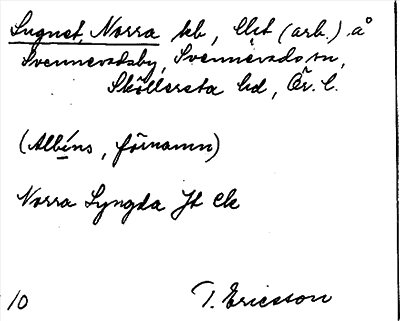 Lugnet, Norra tkb, lht (arb.) å
Svennevadsby, Svennevads sn,
Sköllersta hd, Ör. l.
(Albéns, förnamn)
Norra Lyngda Jt Ek
10 T. Ericsson